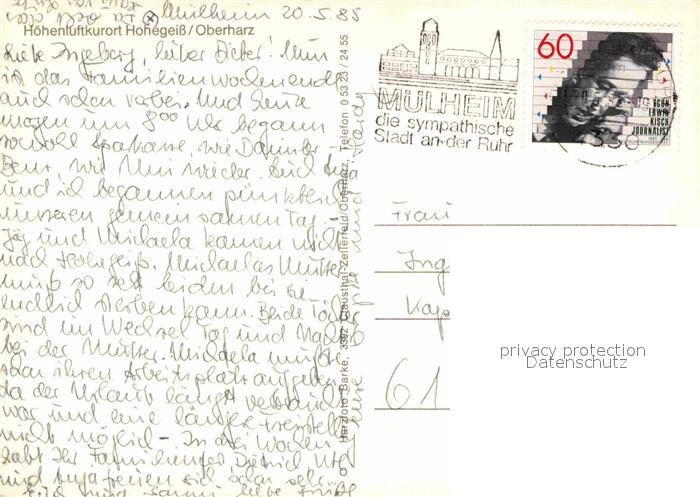 Mülheim 20.5.85
Höhenluftkurort Hohegeiß / Oberharz
Liebe Ingeborg, lieber Dieter! Nun
ist das Familienwochenende
auch schon vorbei. Und heute
morgen um 8⁰⁰ Uhr begann
sowohl Sparkasse, wie Daimler-
Benz, wie Uni wieder. Auch
und ich begannen pünktlich
unseren gemeinsamen Tag.
Jörg und Michaela kamen nicht
nach Hohegeiß. Michaelas Mutter
muß so sehr leiden bis sie
endlich sterben kann. Beide Töchter
sind im Wechsel Tag und Nacht
bei der Mutter. Michaela mußte
ihren Arbeitsplatz aufgeben
da der Urlaub längst verbraucht
war und eine längere Freistellung
nicht möglich. In drei Wochen
habt Ihr Familien
und freuen sich schon sehr
Harzfoto Barke, 3392 Clausthal-Zellerfeld/Oberharz, Telefon 0 53 23 / 24 55
MÜLHEIM
die sympathische
Stadt an der Ruhr
60
EGON
ERWIN
KISCH
JOURNALIST
330
Frau
Ing
Kap
61
privacy protection
Datenschutz